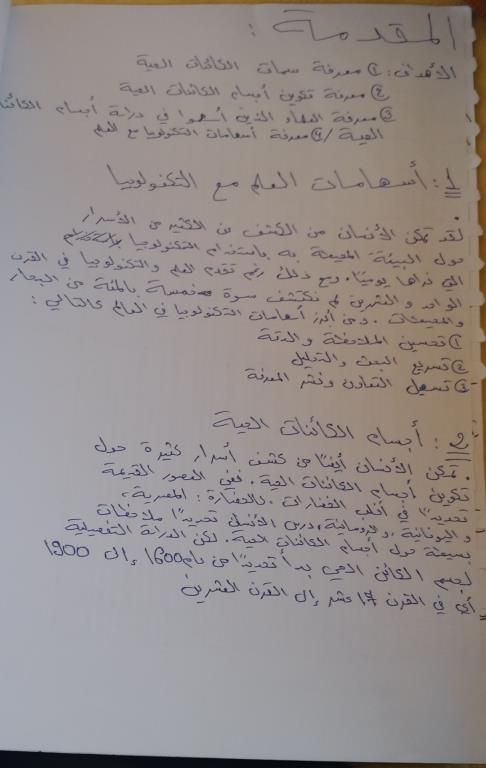 المقدمة :
الأهداف: ① معرفة سمات الكائنات الحية
② معرفة تكوين أجسام الكائنات الحية
③ معرفة العلماء الذين أسهموا في دراسة أجسام الكائنات
الحية / ④ معرفة أسهامات التكنولوجيا مع العلم
1 : أسهامات العلم مع التكنولوجيا
لقد تمكن الأنسان من الكشف عن الكثير من الأسرار
حول البيئة المحيطة به باستخدام التكنولوجيا
التي نراها يوميًا. ومع ذلك رغم تقدم العلم والتكنولوجيا في القرن
الواحد والعشرين لم نكتشف سوة خمسة بالمئة من البحار
والمحيطات . ومن أبرز أسهامات التكنولوجيا في العالم كالتالي :
① تحسين الملاحظة والدقة
② تسريع البحث والتحليل
③ تسهيل التعاون ونشر المعرفة
2 : أجسام الكائنات الحية
. تمكن الأنسان أيضًا من كشف أسرار كثيرة حول
تكوين أجسام الكائنات الحية. ففي العصور القديمة
تحديدًا في أغلب الحضارات. كالحضارة : المصرية،
و اليونانية ،و الرومانية، درس الأنسان تحديدًا ملاحظات
بسيطة حول أجسام الكائنات الحية. لكن الدراسة التفصيلية
لجسم الكائن الحي بدأ تحديدًا من عام 1600 إلى 1900
أي في القرن 17 عشر إلى القرن العشرين